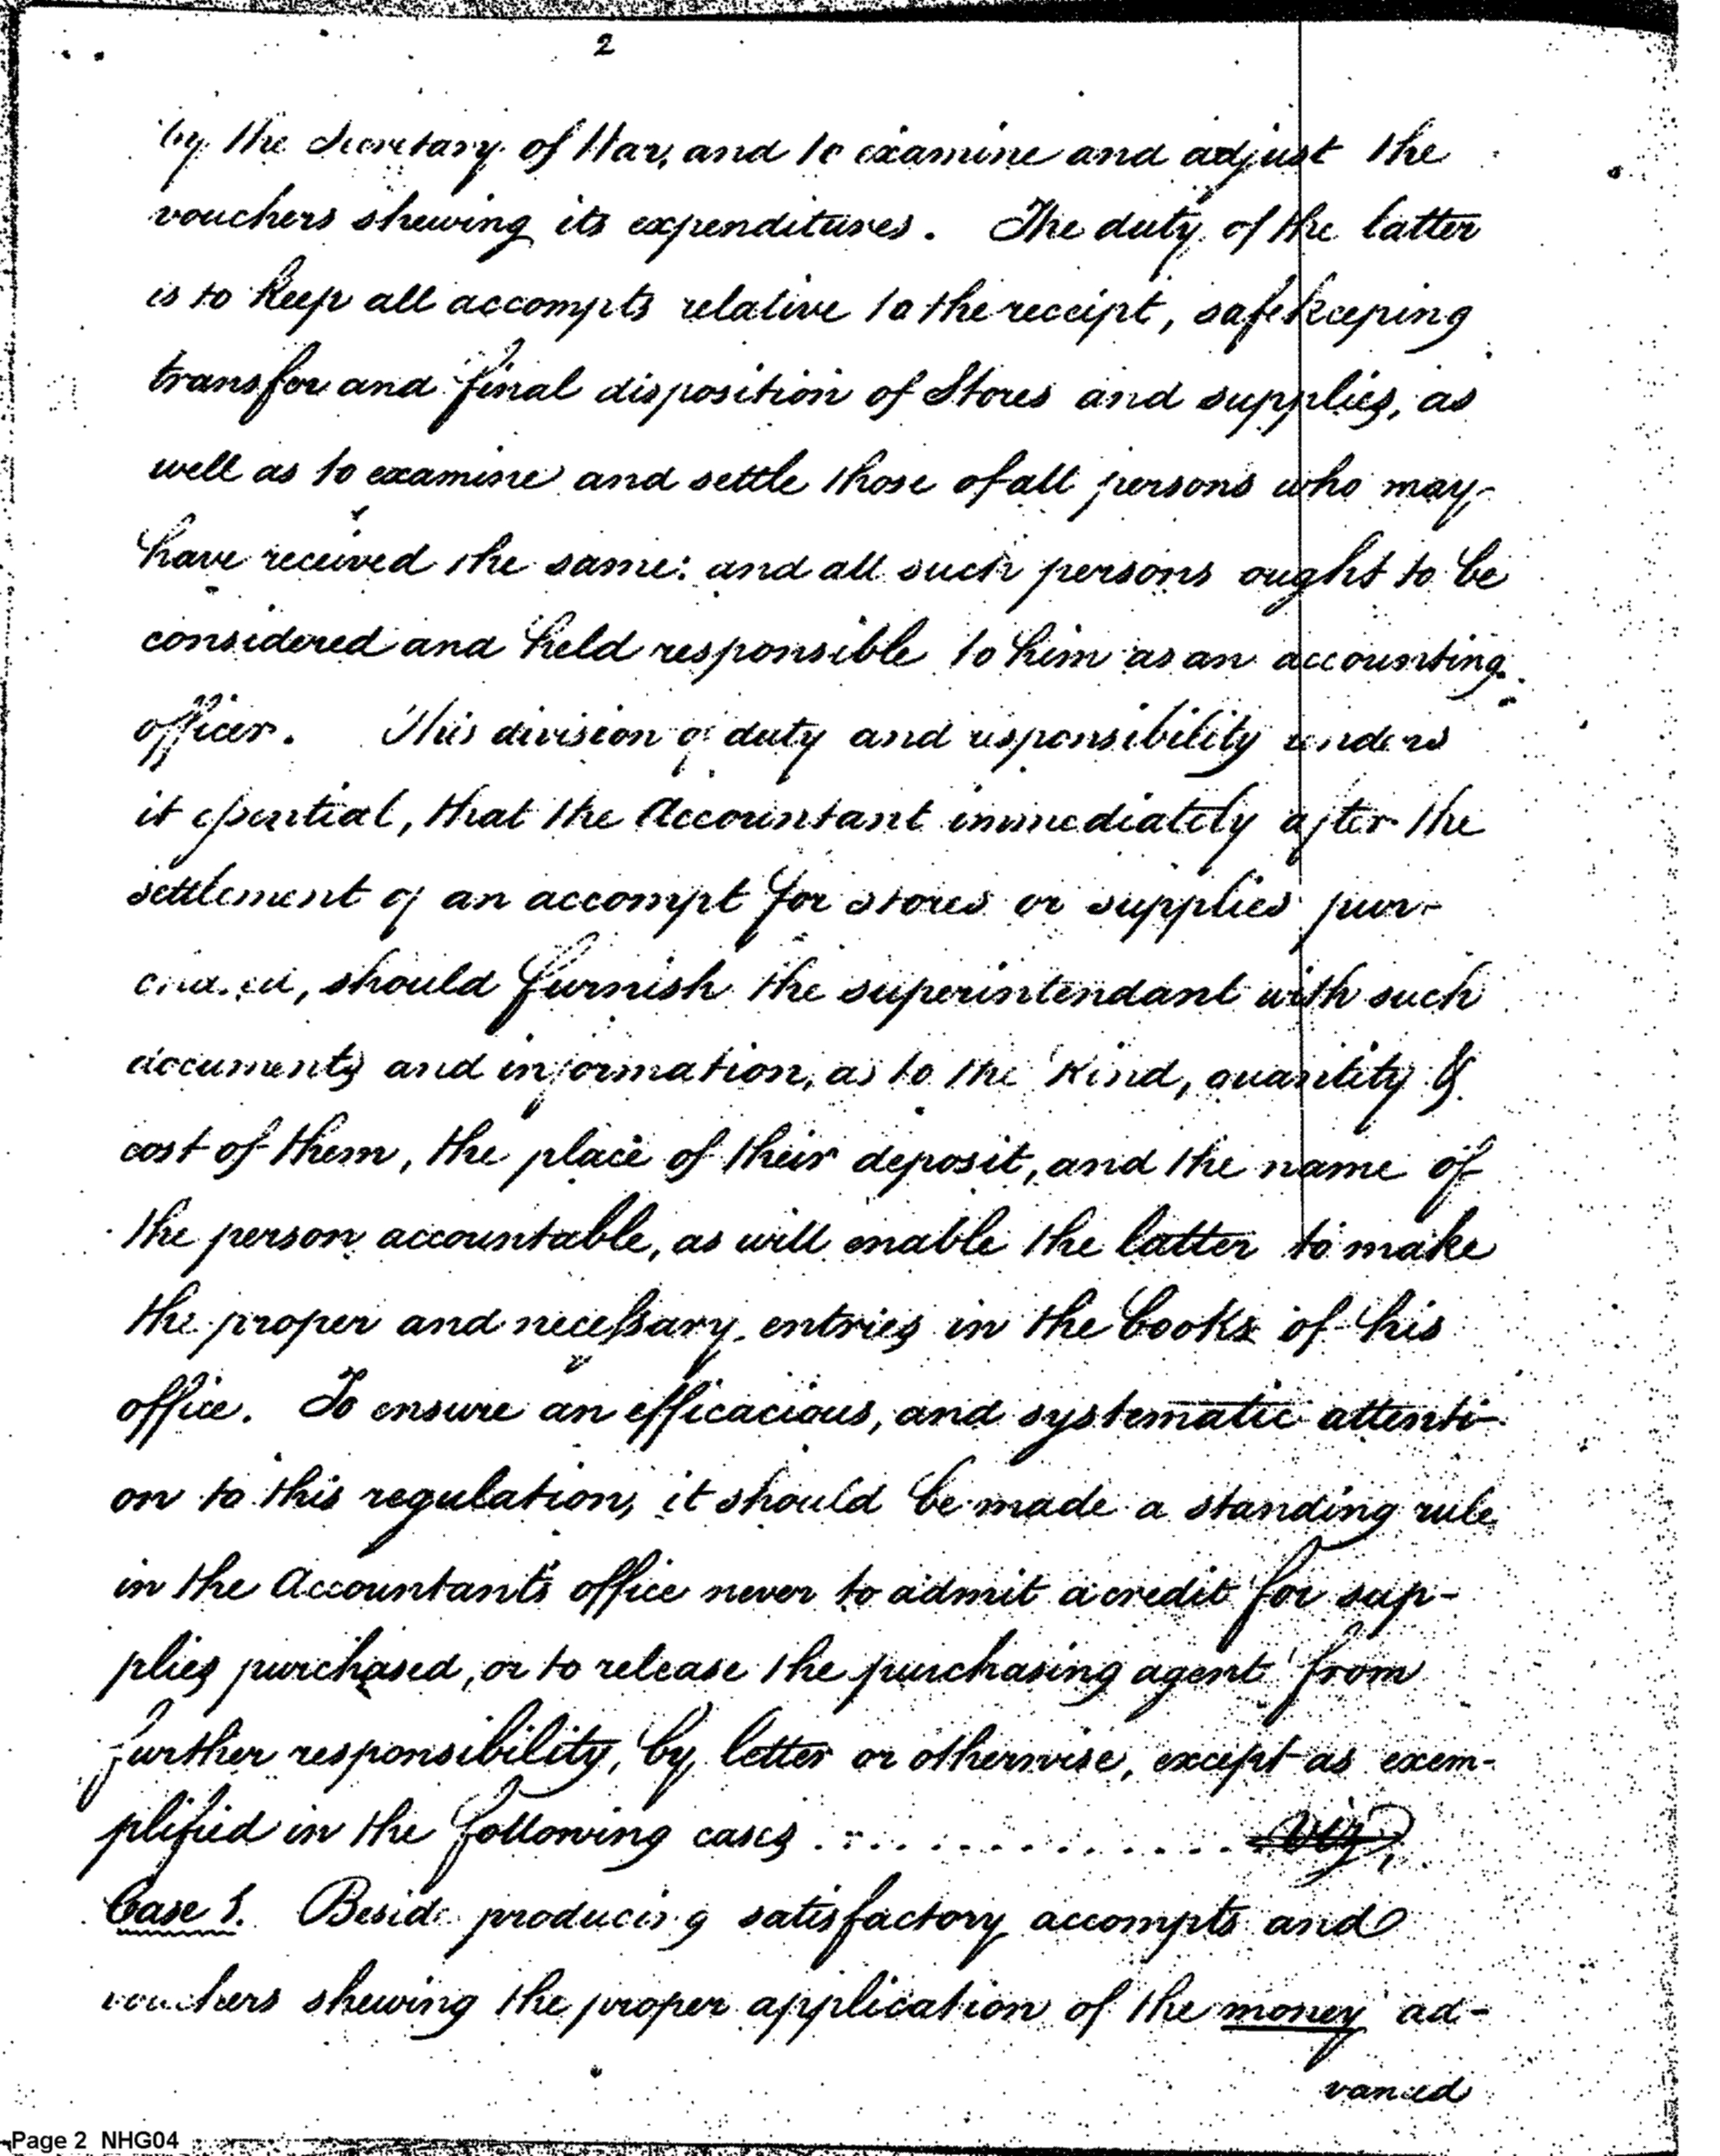 2
by the Secretary of War, and to examine and adjust the
vouchers shewing its expenditures. The duty of the latter
is to keep all accompts relative to the receipt, safekeeping
transfer and final disposition of Stores and supplies, as
well as to examine and settle those of all persons who may
have received the same: and all such persons ought to be
considered and held responsible to him as an accounting
officer. This division of duty and responsibility renders
it essential, that the Accountant immediately after the
settlement of an accompt for stores or supplies pur-
chased, should furnish the superintendant with such
documents and information, as to the kind, quantity &
cost of them, the place of their deposit, and the name of
the person accountable, as will enable the latter to make
the proper and necessary entries in the books of his
office. To ensure an efficacious, and systematic attenti-
on to this regulation, it should be made a standing rule
in the Accountant's office never to admit a credit for sup-
plies purchased, or to release the purchasing agent from
further responsibility, by letter or otherwise, except as exem-
plified in the following cases .............. Viz,
Case 1. Beside producing satisfactory accompts and
vouchers shewing the proper application of the money ad-
vanced
Page 2 NHG04